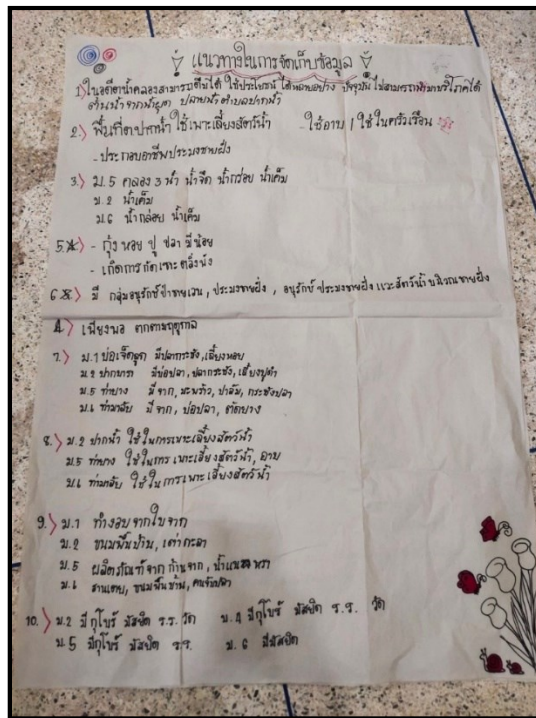 แนวทางในการจัดเก็บข้อมูล
1) ในอดีตน้ำคลองสามารถดื่มได้ ใช้ประโยชน์ได้หลายอย่าง ปัจจุบันไม่สามารถนำมาบริโภคได้
ปลายน้ำตำบลปากน้ำ
2.) พื้นที่ต.ปากน้ำ ใช้เพาะเลี้ยงสัตว์น้ำ - ใช้อาบ / ใช้ในครัวเรือน
- ประกอบอาชีพประมงชายฝั่ง
3.) ม.5 คลอง 3 น้ำ น้ำจืด น้ำกร่อย น้ำเค็ม
ม.2 น้ำเค็ม
ม.6 น้ำกล่อย น้ำเค็ม
5.) - กุ้ง หอย ปู ปลา มีน้อย
- เกิดการกัดเซาะตลิ่งพัง
6) มี กลุ่มอนุรักษ์ป่าชายเลน, ประมงชายฝั่ง, อนุรักษ์ประมงชายฝั่งและสัตว์น้ำบริเวณชายฝั่ง
4.) เพียงพอ ตกตามฤดูกาล
7.) ม.1 บ่อเจ็ดลูก มีปลากระชัง, เลี้ยงหอย
ม.2 ปากบารา มีบ่อปลา, ปลากระชัง, เลี้ยงปูดำ
ม.5 ท่ายาง มีจาก, มะพร้าว, ปาล์ม, กระชังปลา
ม.6 ท่ามาลัย มีจาก, บ่อปลา, ตัดยาง
8.) ม.2 ปากน้ำ ใช้ในการเพาะเลี้ยงสัตว์น้ำ
ม.5 ท่ายาง ใช้ในการเพาะเลี้ยงสัตว์น้ำ, อาบ
ม.6 ท่ามาลัย ใช้ในการเพาะเลี้ยงสัตว์น้ำ
9.) ม.1 ทำงอบจากใบจาก
ม.2 ขนมพื้นบ้าน, เต่ากะลา
ม.5 ผลิตภัณฑ์จากก้านจาก,
ม.6 สานเตย, ขนมพื้นบ้าน,
10.) ม.2 มีกุโบร์ มัสยิด ร.ร. วัด ม.4 มีกุโบร์ มัสยิด ร.ร. วัด
ม.5 มีกุโบร์ มัสยิด ร.ร. ม.6 มีมัสยิด